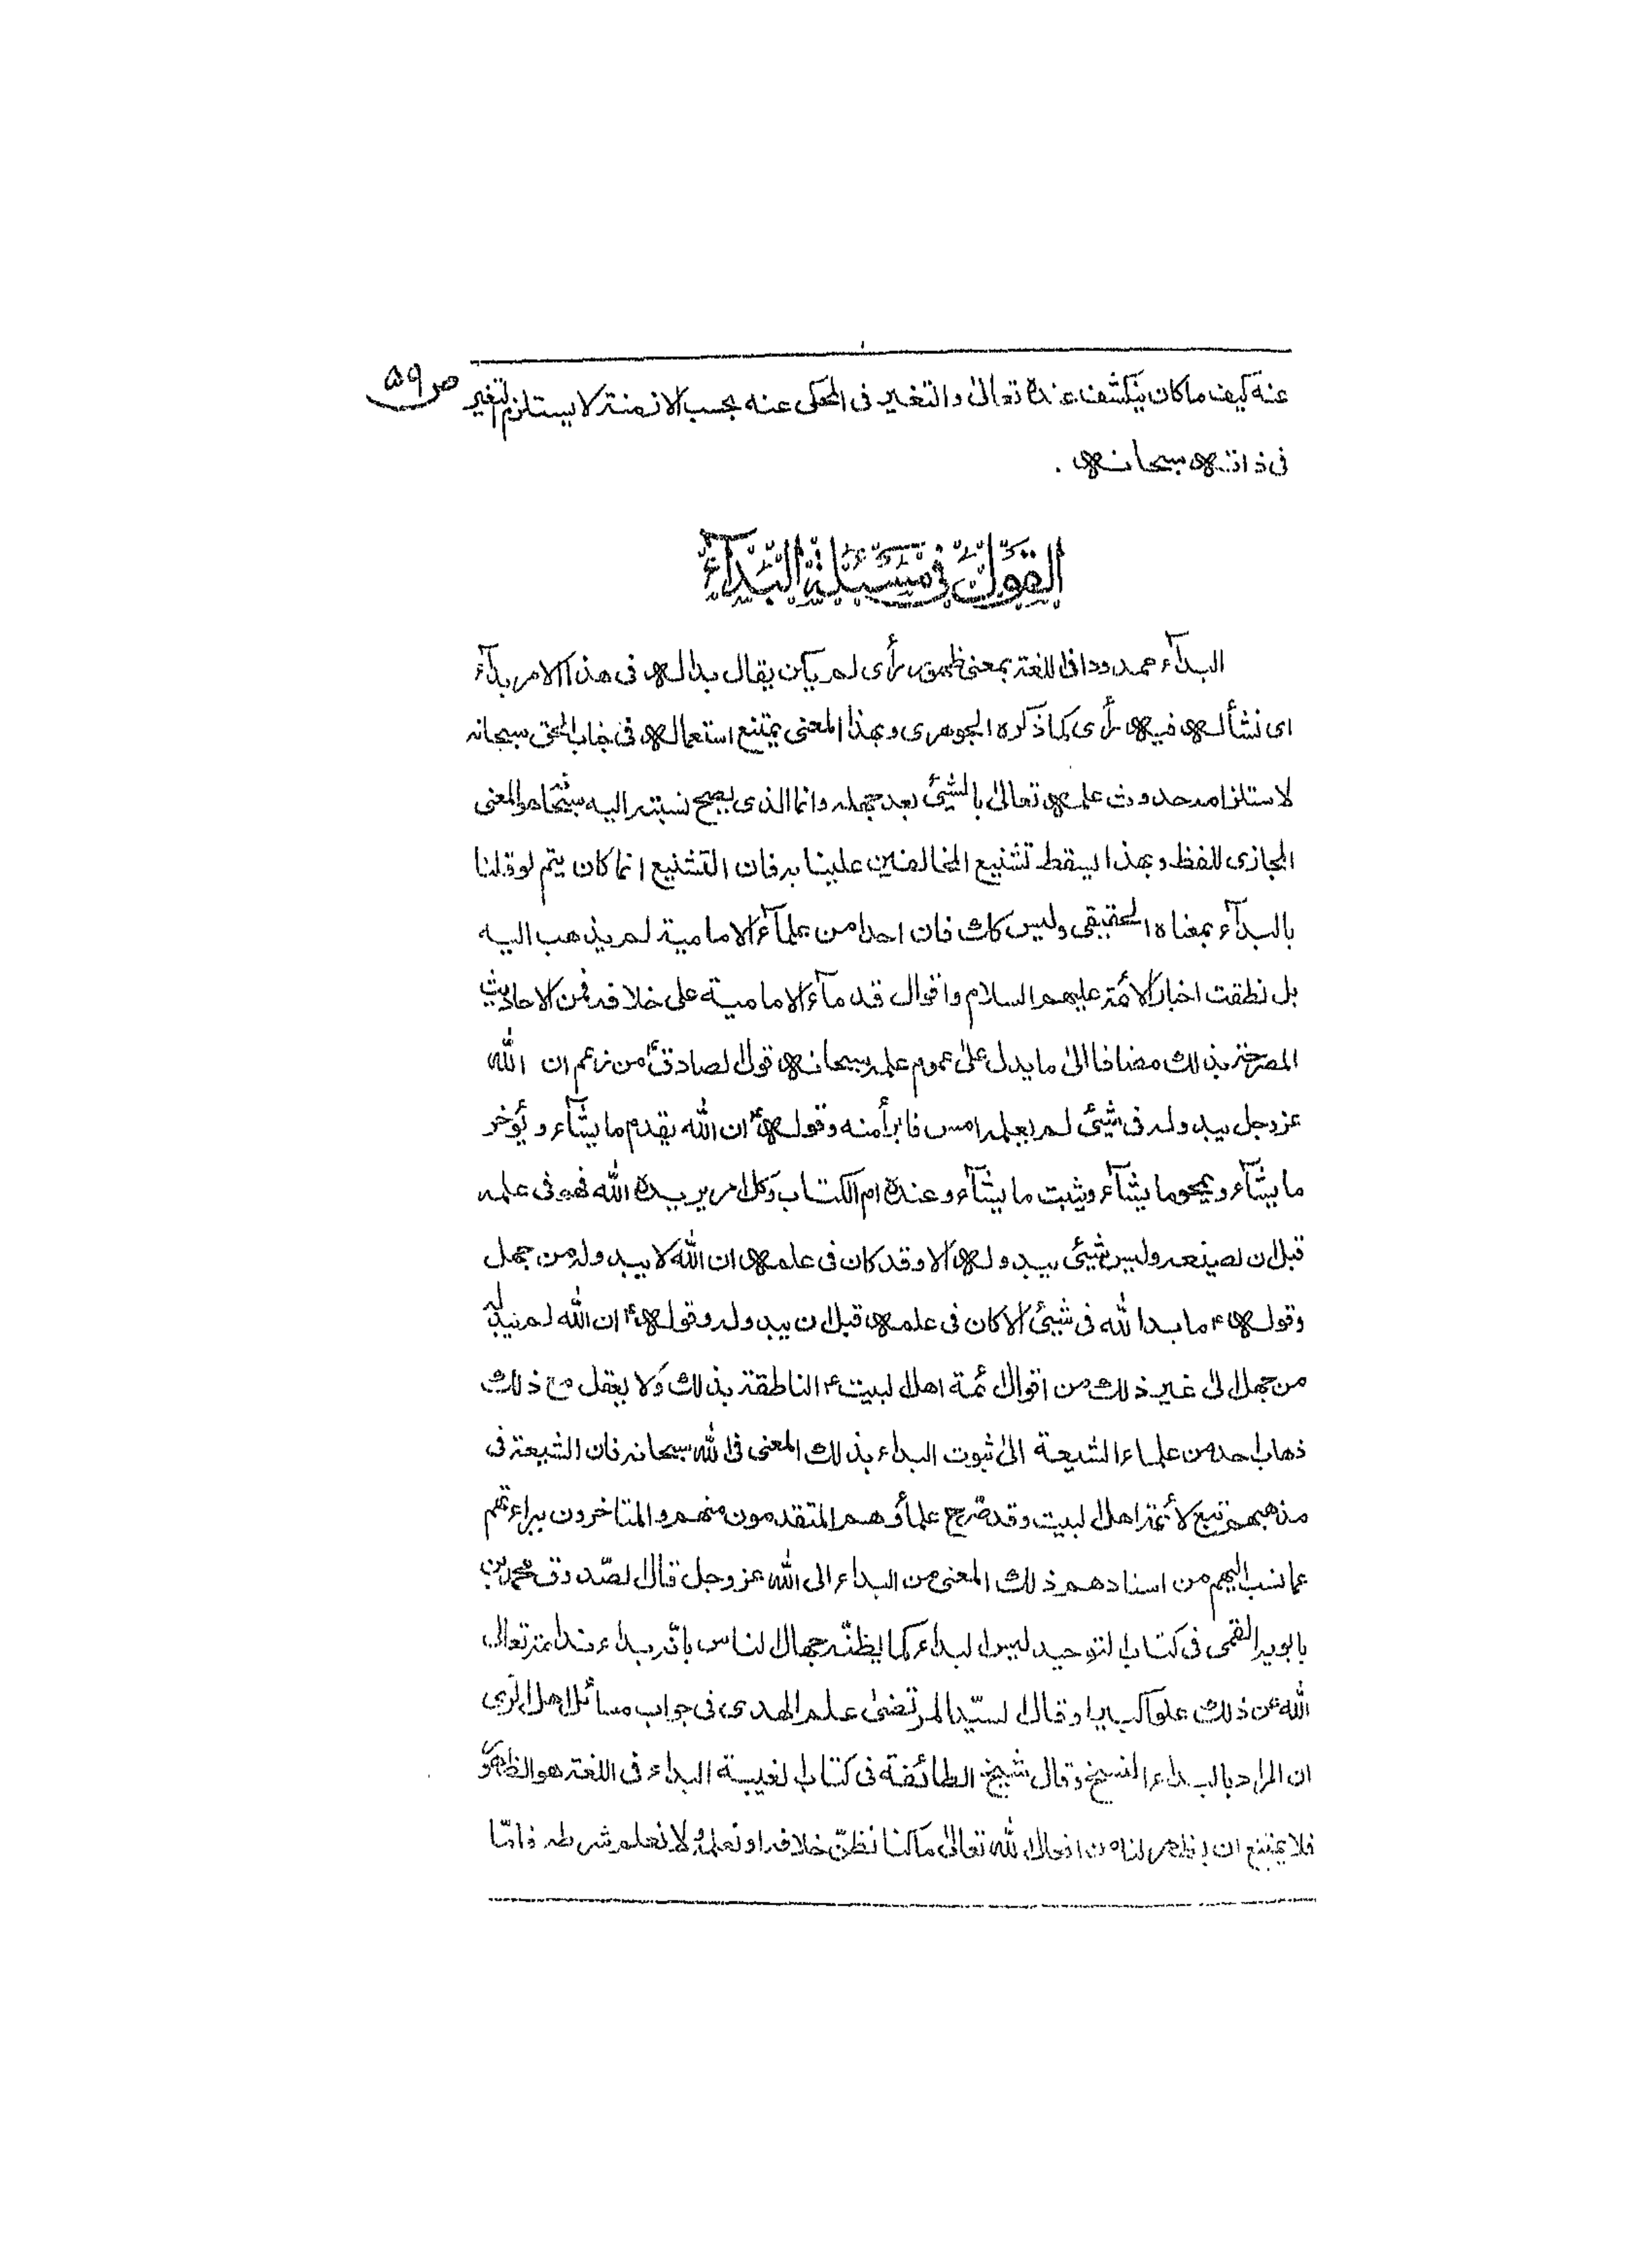 ص ۵۹
عنه كيف ما كان ينكشف عنده تعالى والتغير فى المحكى عنه بحسب الازمنة لا يستلزم التغير
فى ذاته سبحانه .
القول فى مسئلة البدآء
البدآء ممدودا فى اللغة بمعنى ظهور رأى لم يكن يقال بدا له فى هذا الامر بدآء
اى نشأ له فيه رأى كما ذكره الجوهرى وبهذا المعنى يمتنع استعماله فى جناب الحق سبحانه
لاستلزامه حدوث علمه تعالى بالشيئ بعد جهله وانما الذى يصح نسبته اليه سبحانه هو المعنى
المجازى للفظ وبهذا يسقط تشنيع المخالفين علينا به فان التشنيع انما كان يتم لو قلنا
بالبدآء بمعناه الحقيقى وليس كك فان احدا من علمآء الامامية لم يذهب اليه
بل نطقت اخبار الائمة عليهم السلام واقوال قدمآء الامامية على خلافه فمن الاحاديث
المصرحة بذلك مضافا الى ما يدل على عموم علمه سبحانه قول الصادق ع من زعم ان الله
عز وجل يبدو له فى شيئ لم يعلمه امس فابرأ منه وقوله ع ان الله يقدم ما يشآء ويؤخر
ما يشآء ويمحو ما يشآء ويثبت ما يشآء وعنده ام الكتاب وكل امر يريده الله فهو فى علمه
قبل ان يصنعه وليس شيئ يبدو له الا وقد كان فى علمه ان الله لا يبدو له من جهل
وقوله ع ما بدا لله فى شيئ الا كان فى علمه قبل ان يبدو له وقوله ع ان الله لم يبد له
من جهل الى غير ذلك من اقوال ئمة اهل البيت ع الناطقة بذلك ولا يعقل مع ذلك
ذهاب احد من علماء الشيعة الى ثبوت البداء بذلك المعنى فى الله سبحانه فان الشيعة فى
مذهبهم تبع لأئمة اهل البيت وقد صرح علمأوهم المتقدمون منهم والمتاخرون ببراءتهم
عما نسب اليهم من اسنادهم ذلك المعنى من البداء الى الله عز وجل قال الصّدوق محمد بن
بابويه القمى فى كتاب التوحيد ليس البداء كما يظنّه جهال الناس بانّه بداء ندامة تعالى
الله عن ذلك علوا كبيرا وقال السيّد المرتضى علم الهدى فى جواب مسائل اهل الرى
ان المراد بالبداء النسخ وقال شيخ الطائفة فى كتاب الغيبة البداء فى اللغة هو الظهور
فلا يمتنع ان يظهر لنا من افعال الله تعالى ما كنا نظنّ خلافه او نعلم ولا نعلم شرطه فامّا